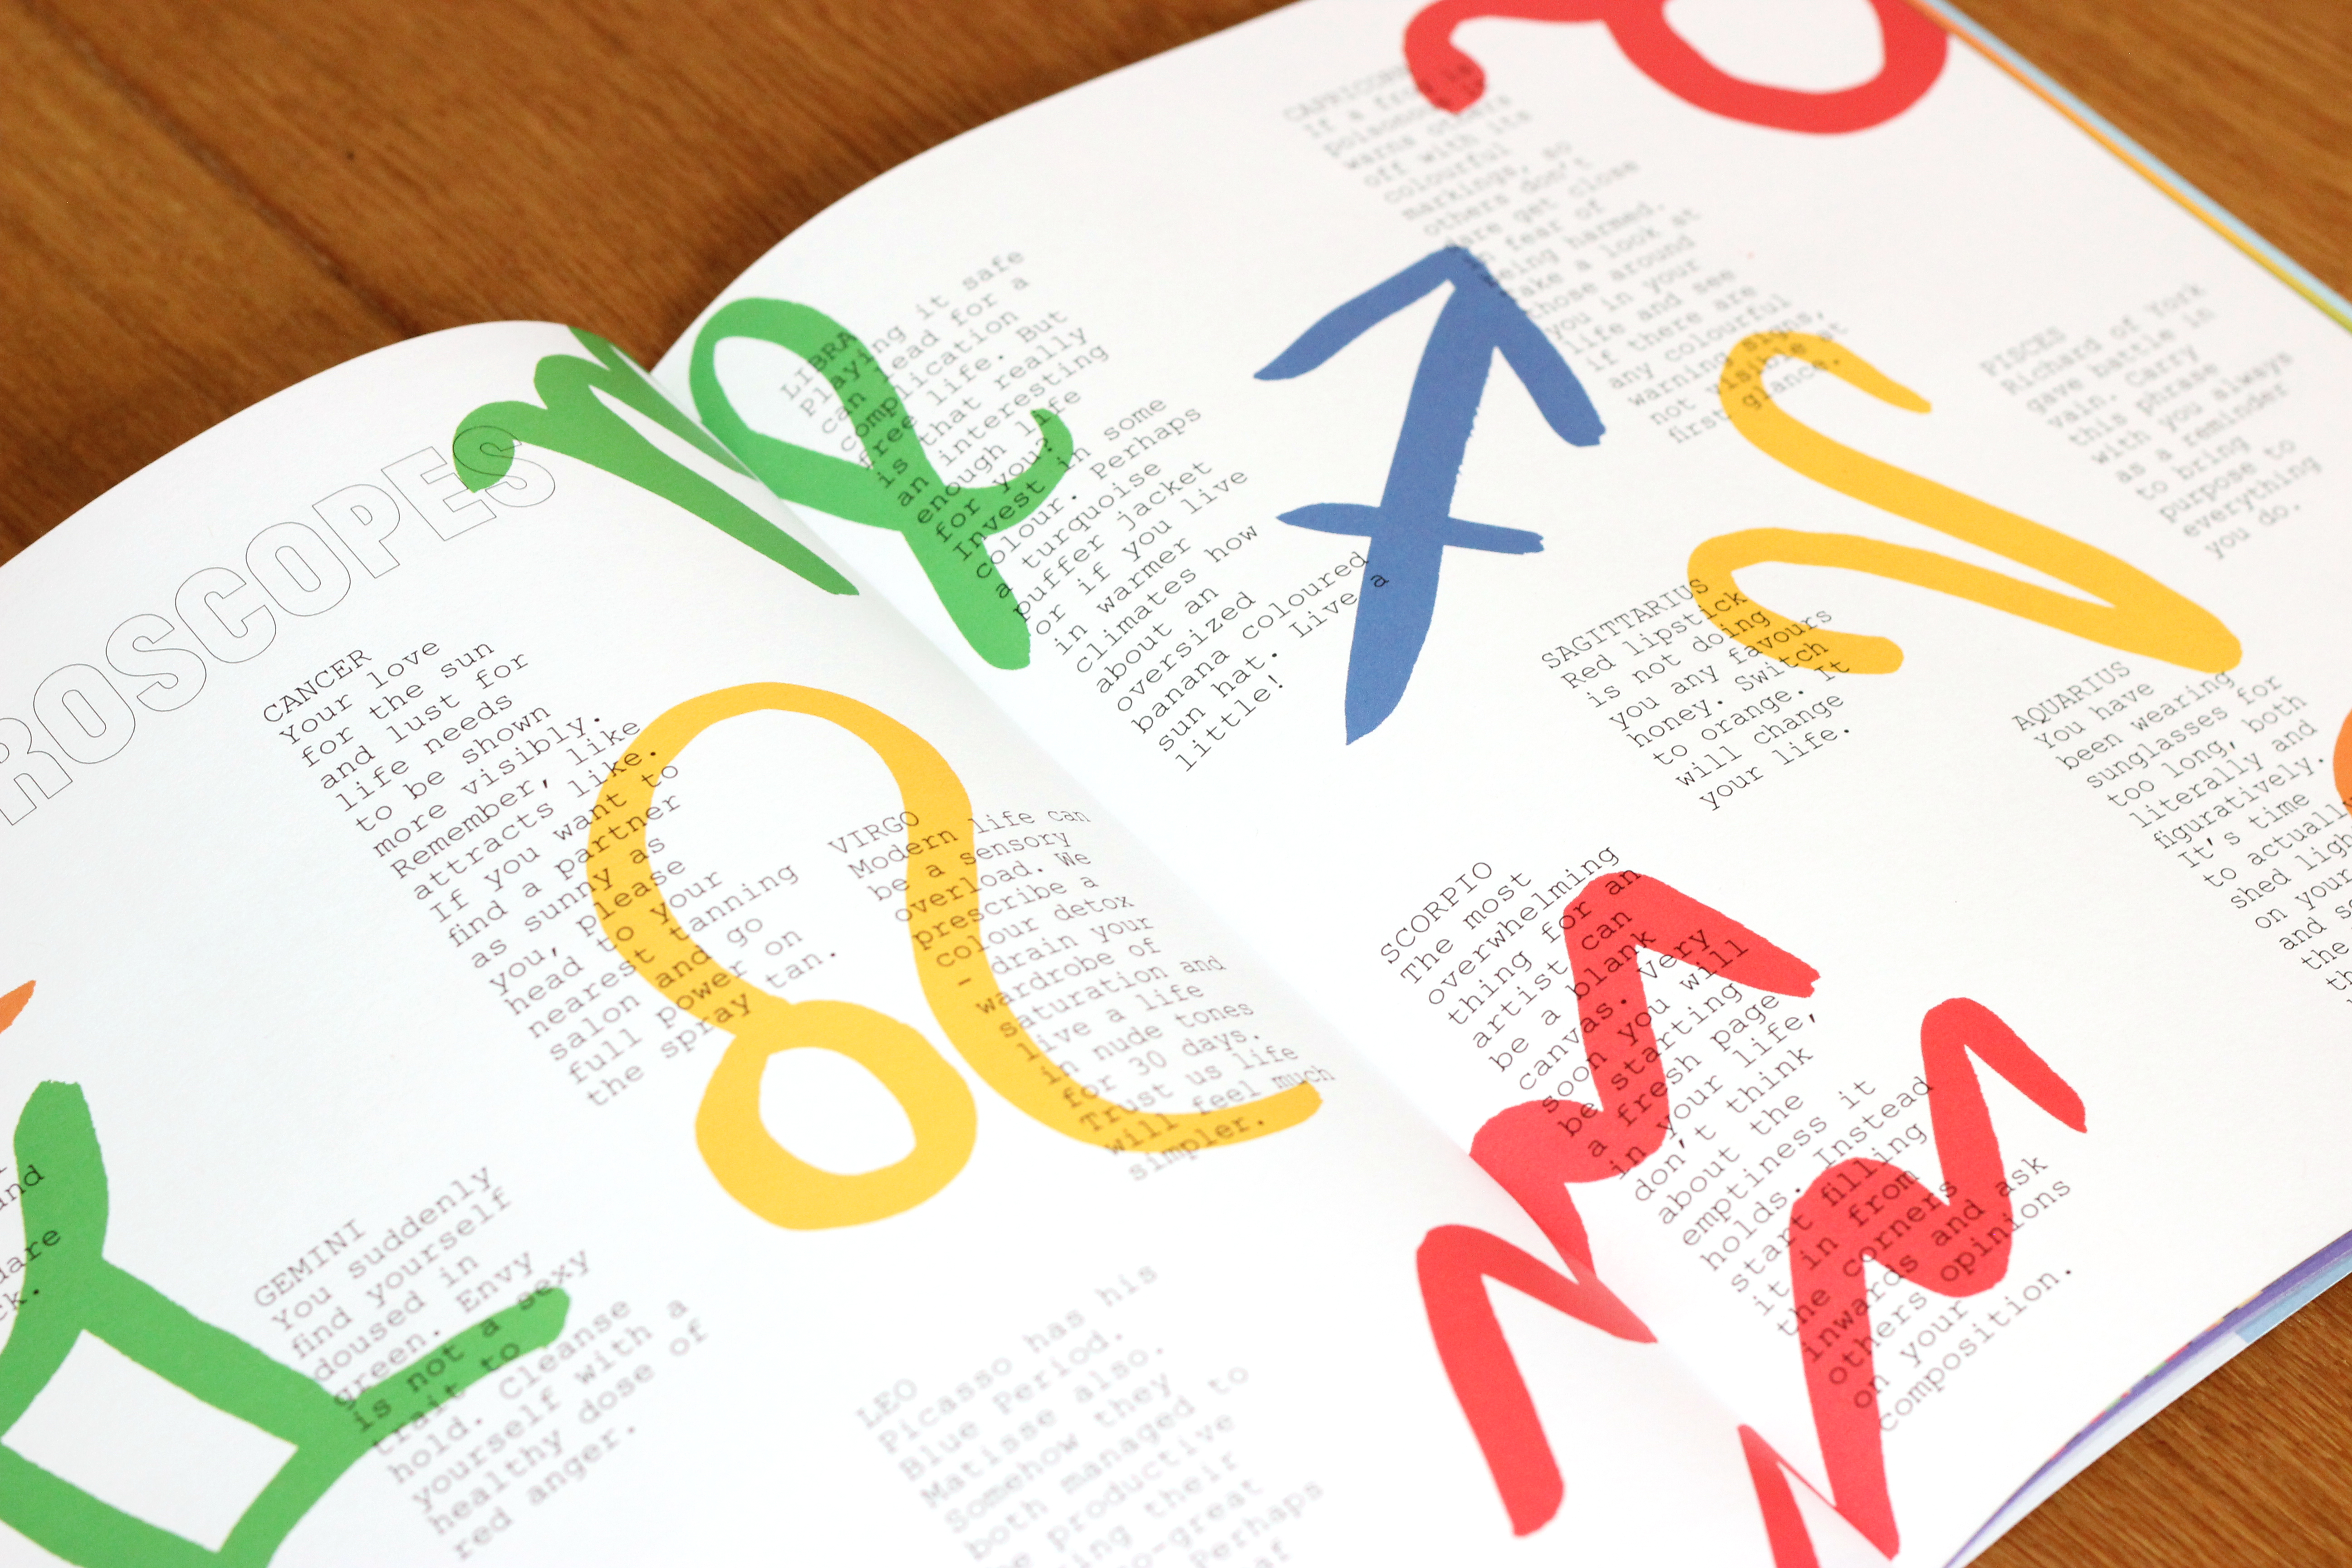 ROSCOPES
CANCER
Your love
for the sun
and lust for
life needs
to be shown
more visibly.
Remember, like
attracts like.
If you want to
find a partner
as sunny as
you, please
head to your
nearest tanning
salon and go
full power on
the spray tan.
GEMINI
You suddenly
find yourself
doused in
green. Envy
is not a sexy
trait to
hold. Cleanse
yourself with a
healthy dose of
red anger.
VIRGO
Modern life can
be a sensory
overload. We
prescribe a
colour detox
- drain your
wardrobe of
saturation and
live a life
in nude tones
for 30 days.
Trust us life
will feel much
simpler.
LEO
Picasso has his
Blue Period.
Matisse also.
Somehow they
both managed to
be productive
Perhaps
LIBRA
Playing it safe
can lead for a
complication
free life. But
is that really
an interesting
enough life
for you?
Invest in some
colour. Perhaps
a turquoise
puffer jacket
or if you live
in warmer
climates how
about an
oversized
banana coloured
sun hat. Live a
little!
SCORPIO
The most
overwhelming
thing for an
artist can
be a blank
canvas. Very
soon you will
be starting
a fresh page
in your life,
don't think
about the
emptiness it
holds. Instead
start filling
it in from
the corners
inwards and ask
others opinions
on your
composition.
SAGITTARIUS
Red lipstick
is not doing
you any favours
honey. Switch
to orange. It
will change
your life.
CAPRICORN
If a frog is
poisonous it
warns others
off with its
colourful
markings, so
others don't
dare get close
in fear of
being harmed.
Take a look at
those around
you in your
life and see
if there are
any colourful
warning signs,
not visible at
first glance.
AQUARIUS
You have
been wearing
sunglasses for
too long, both
literally and
figuratively.
It's time
to actually
shed
on your
and
the
PISCES
Richard of York
gave battle in
vain. Carry
this phrase
with you always
as a reminder
to bring
purpose to
everything
you do.